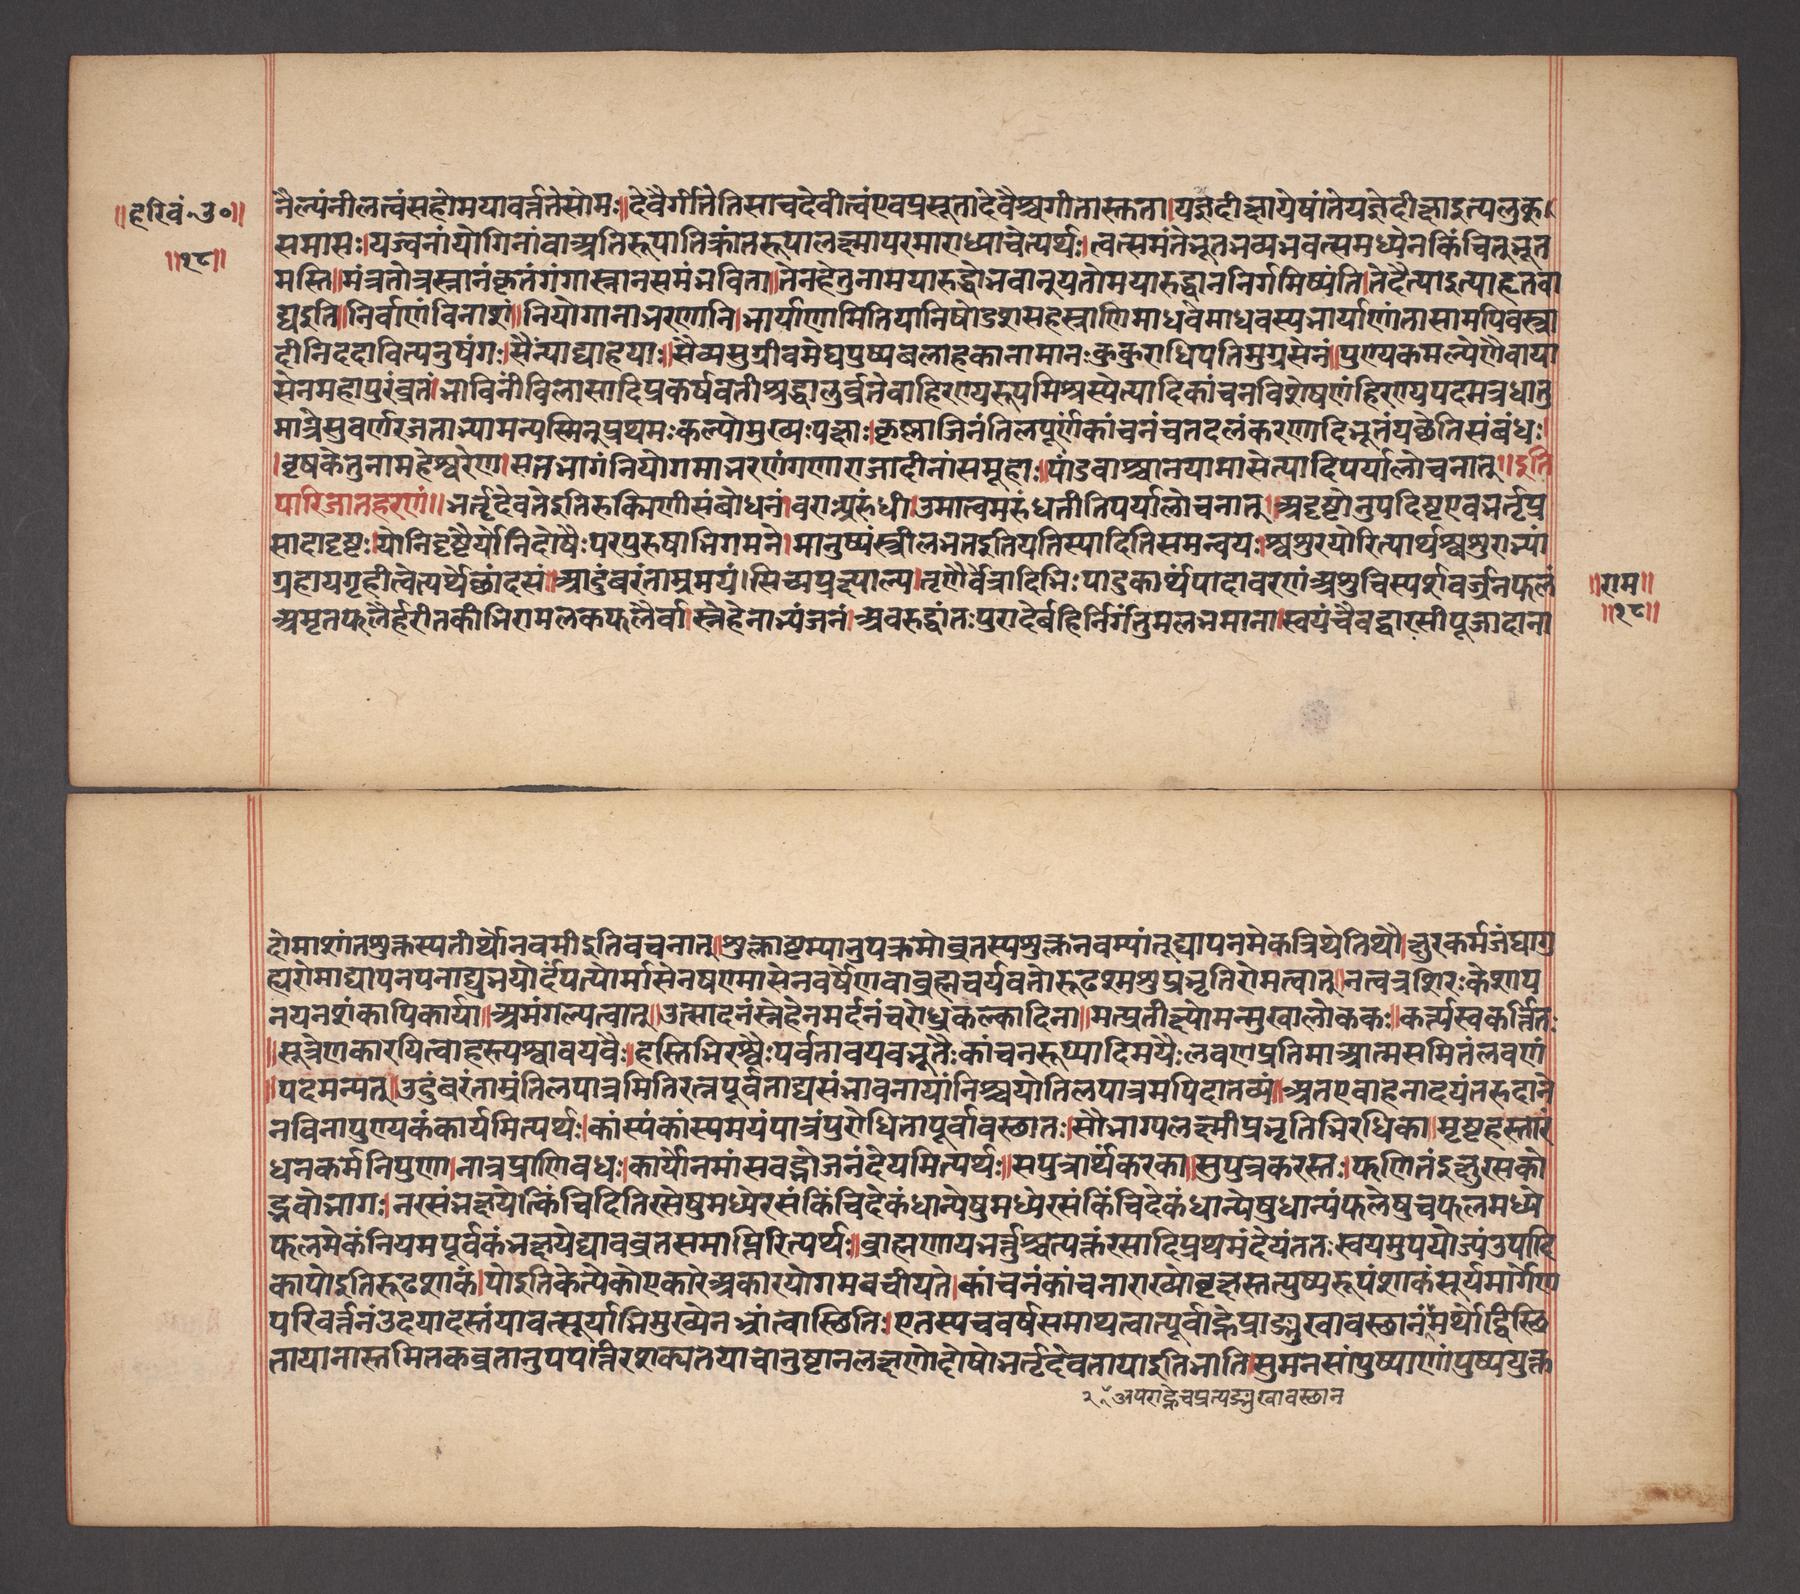 ॥हरिवं॰उ॰॥
॥१८॥
नैल्यंनीलत्वंसहोमयावर्त्ततेसोमः॥देवैर्गीतेतिसाचदेवीत्वंएवप्रसूतादेवैश्चगीतास्तता।यज्ञेदीक्षायेषांतेयज्ञेदीक्षाइत्यलुक्
समासः।यज्वनांयोगिनांवाअतिरूपातिक्रांतरूपालक्ष्मापरमाराध्याचेत्यर्थः।त्वत्समंतेभूतभव्यभवत्समध्येनकिंचित्भूत
मस्ति॥मंत्रतोत्रस्नानंकृतंगंगास्नानसमंभविता॥तेनहेतुनामयारुद्धोभवानुयतोमयारुद्धाननिर्गमिष्यंति।तेदैत्याइत्याहृतवा
द्यइति॥निर्वाणंविनाशं॥नियोगानाभरणानि।भार्याणामितियानिषोडशसहस्राणिमाधवेमाधवस्यभार्याणांतासामपिवस्त्रा
दीनिददावित्यनुषंगः।सैन्याद्याहयाः॥सैव्यसुग्रीवमेघपुष्पबलाहकानामानःकुकुराधिपतिमुग्रसेनं॥पुण्यकमल्पेणैवाया
सेनमहापुरंव्रतं।भाविनींविलासादिप्रकर्षवतीश्रद्धालुर्व्रतेवाहिरण्यरूप्यमिश्रस्येत्यादिकांचनविशेषणंहिरण्यपदमत्रधातु
मात्रेसुवर्णरजताभ्यामन्यस्मिन्प्रथमःकल्पोमुख्यःपक्षः।कृष्णाजिनंतिलपूर्णंकांचनंचतदलंकरणादिभूतंयच्छेतिसंबंधः।
।वृषकेतुनामहेश्वरेण।सतभागंनियोगमाभरणंगणाराजादीनांसमूहाः॥पांडवाश्चानयामासेत्यादिपर्यालोचनात्॥इति
पारिजातहरणं॥भर्तृदेवतेइतिरुक्मिणीसंबोधनं।वरान्प्ररुंधी।उमात्वमरुंधतीतिपर्यालोचनात्।अदृष्टोनुपदिष्टएवभर्तृप्र
सादादृष्टः।योनिदुष्टैर्योनिदोषैःपरपुरुषाभिगमने।मानुष्यंस्त्रीलभतइतियतिस्यादितिसमन्वयः।श्वशुरयोरित्यार्थश्वशुराभ्यां
ग्रहायगृहीत्वेत्यर्थेछांदसं॥आडुंबरंताम्रमयं।सिच्यप्रक्षाल्प।तृणैर्वेत्रादिभिःपाडुकार्थंपादावरणंअशुचिस्पर्शवर्जनफलं
अमृतफलैर्हरीतकीभिरामलकफलैर्वा।स्नेहेनाभ्यंजनं।अवरुद्धांतःपुरादेर्बहिर्निर्गंतुमलभमाना।स्वयंचैवद्वारसीपूजादाना
॥राम॥
॥१८॥
होमाशांतशुक्लस्पतीर्थोनवमीइतिवचनात्॥शुक्लाष्टम्यानुपक्रमोव्रतस्पशुक्लनवम्यांतूद्यापनमेकत्रिथेतिथौ।क्षुरकर्मजंघागु
ह्यरोमाद्यापनपनाद्युभयोर्दंपत्योर्मासेनषण्मासेनवर्षेणवाब्रह्मचर्यवतोरूढश्मश्रुप्रभृतिरोमत्वात्।नत्वत्रशिरःकेशाप
नयनशंकापिकार्या॥अमंगल्यत्वात्॥उत्सादनंस्नेहेनमर्दनंचरोध्रकल्कादिना॥मत्प्रतीक्ष्योमन्मुखालोककः॥कर्त्त्यस्वकर्त्तितः
॥सूत्रेणकारयित्वाहस्त्यश्वावयवैः॥हस्तिभिरश्वैःपर्वतावयवभूतैःकांचनरूप्यादिमयैःलवणप्रतिमाआत्मसमितंलवणं
॥पदमन्यत्॥उदुंबरंताम्रंतिलपात्रमितिरत्नपूर्वताद्यसंभावनायांनिश्चयोतिलपात्रमपिदातव्यं॥अतएवाहनादयंतरुदाने
नविनापुण्यकंकार्यमित्यर्थः।कांस्यंकांस्यमयंपात्रंपुरोधितापूर्वावस्थातः।सौभाग्यलक्ष्मीप्रभृतिभिरधिका॥मृष्टहस्तारं
धनकर्मनिपुणा।नात्रप्राणिवधः।कार्योनमांसवद्भोजनंदेयमित्यर्थः॥सपुत्रार्थकरका॥सुपुत्रकरस्तः।फणितंइक्षुरसको
द्भवोभागः।नरसंभक्षयेत्किंचिदितिरसेषुमध्येरसंकिंचिदेकंधान्येषुमध्येरसंकिंचिदेकंधान्येषुधान्यंफलेषुचफलमध्ये
फलमेकंनियमपूर्वकंभक्षयेद्यावव्रतसमाप्तिरित्यर्थः॥ब्राह्मणायभर्त्तुश्चत्यक्तंरसादिप्रथमंदेयंततःस्वयमुपयोज्यंउपादि
कापोइतिरूढशाकं।पोइतिकेत्येकोएकारेअकारयोगमवचीयते।कांचनंकांचनाराख्योवृक्षस्तत्पुष्परूपंशाकंसूर्यमार्गेण
परिवर्त्तनंउदयादस्तंयावत्सूर्याभिमुख्येनभ्रांत्वास्थितिः।एतस्यचवर्षसमाप्यत्वात्पूर्वाह्नेप्राङ्मुखावस्थानंमर्थोद्विस्थि
तायानास्तमितकव्रतानुपपत्तिरशक्यतयाचानुष्टानलक्षणोदोषोभर्तृदेवतायाइतिभाति।सुमनसांपुष्पाणांपुष्पयुक्त
२ँअपराह्नेचप्रत्यङ्मुखावस्थान